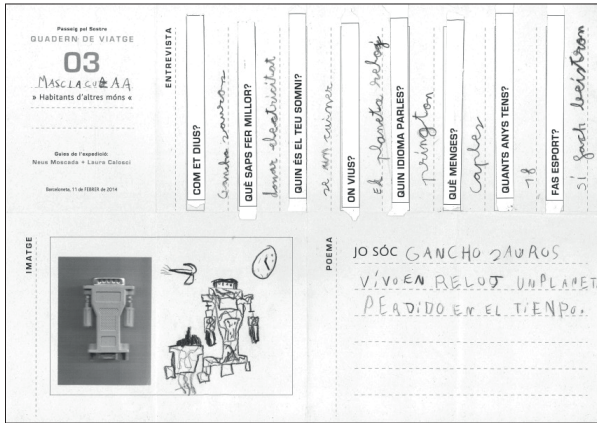 Passeig pel Sostre
QUADERN DE VIATGE
03
MASCLAGUERAA
» Habitants d'altres móns «
Guies de l'expedició:
Neus Moscada + Laura Calosci
Barceloneta, 11 de FEBRER de 2014
ENTREVISTA
COM ET DIUS?
Gancho sauros
QUÈ SAPS FER MILLOR?
donar electricitat
QUIN ÉS EL TEU SOMNI?
se un cuiner
ON VIUS?
El planeta reloj
QUIN IDIOMA PARLES?
prington
QUÈ MENGES?
caples
QUANTS ANYS TENS?
18
FAS ESPORT?
si fach
IMATGE
POEMA
JO SÓC GANCHO SAUROS
VIVO EN RELOJ UN PLANET
PERDIDO EN EL TIENPO.